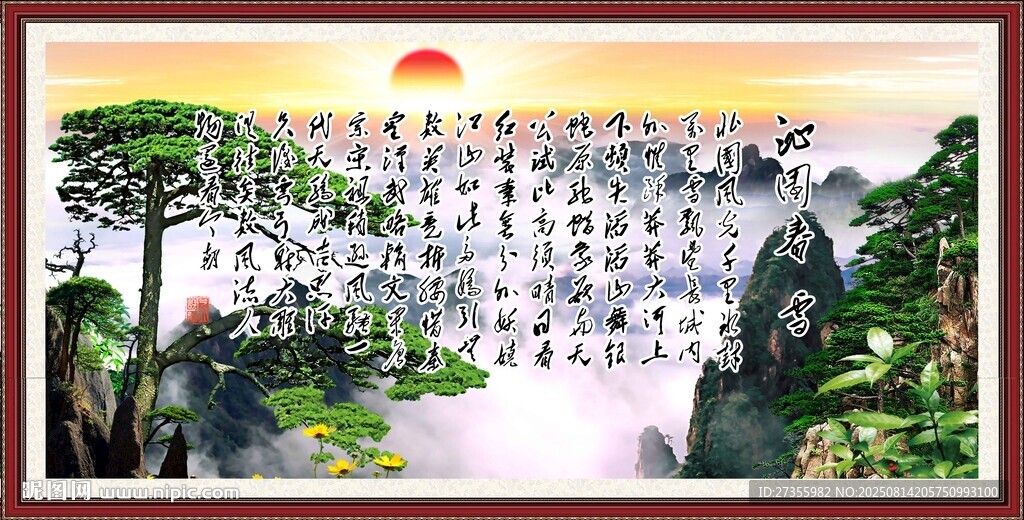 沁園春 雪
北國風光千里冰封
万里雪飘望長城内
外惟馀莽莽大河上
下頓失滔滔山舞銀
蛇原驰蜡象欲与天
公試比高须晴日看
红装素裹分外妖娆
江山如此多嬌引無
数英雄竞折腰惜秦
皇漢武略输文采唐
宗宋祖稍逊風骚一
代天骄成吉思汗
只识弯弓射大雕
俱往矣数風流人
物还看今朝
昵图网 www.nipic.com
ID:27355982 NO:20250814205750993100